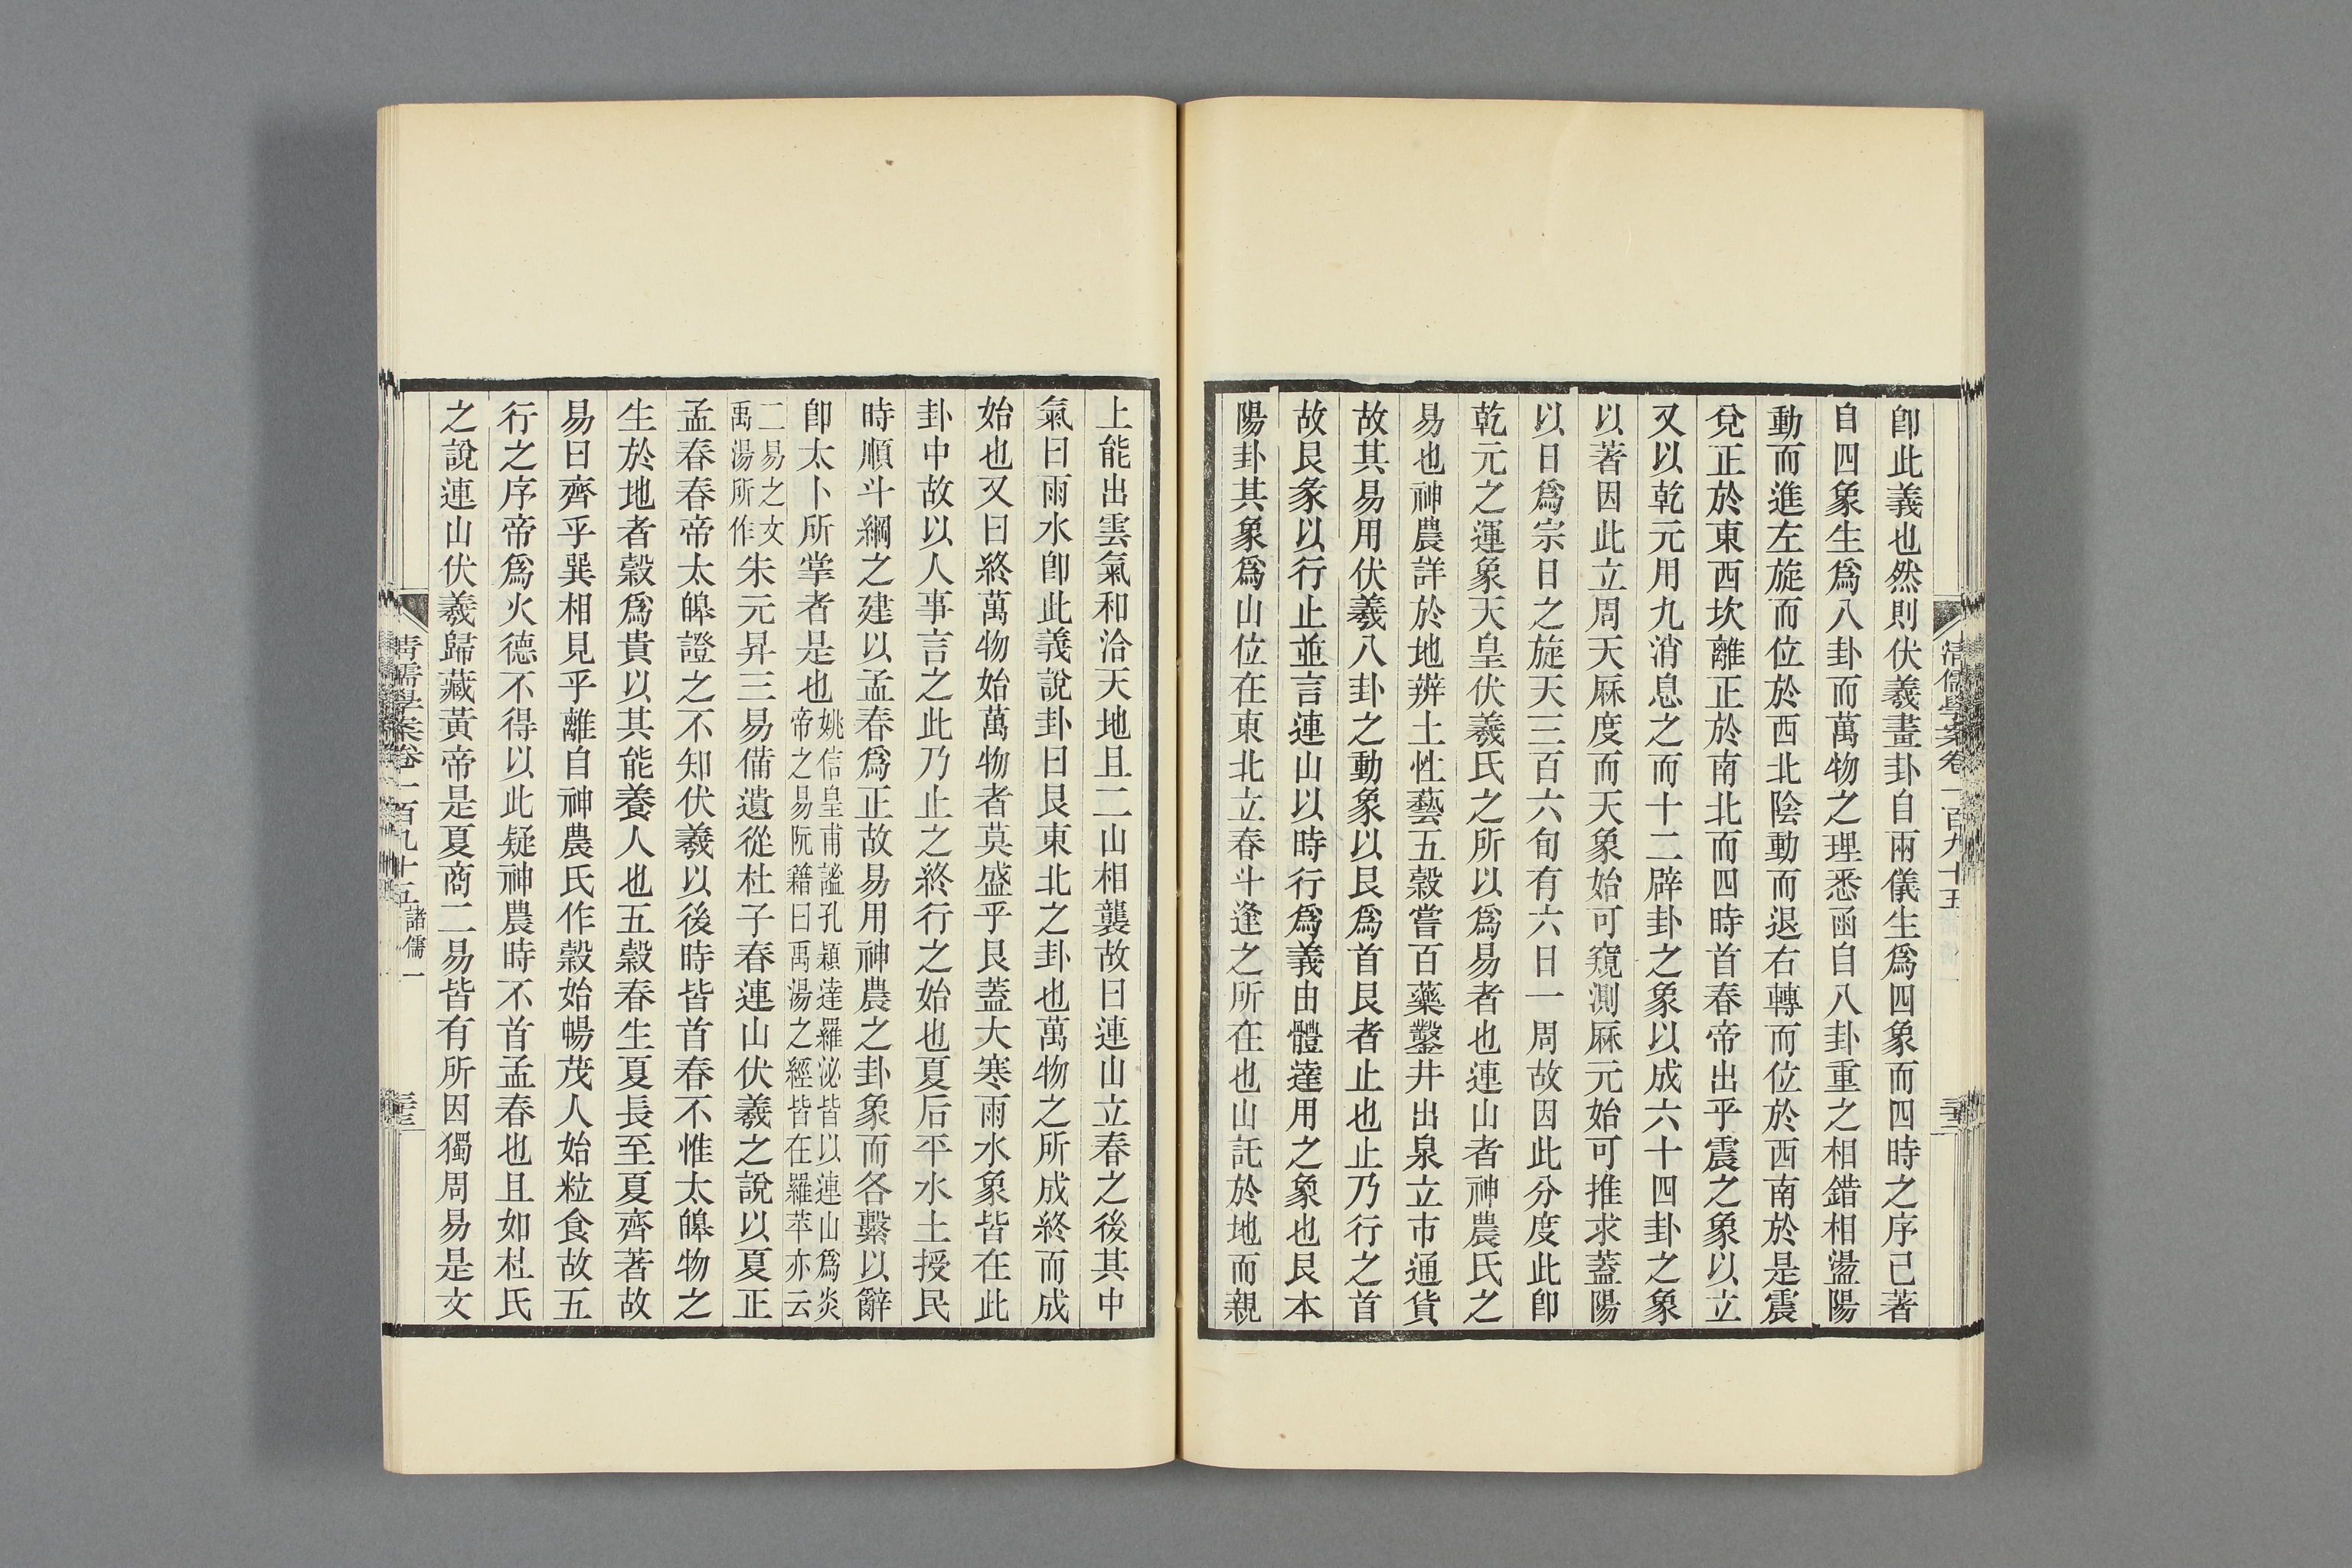 卽此義也然則伏羲畫卦自兩儀生爲四象而四時之序已著
自四象生爲八卦而萬物之理悉函自八卦重之相錯相盪陽
動而進左旋而位於西北陰動而退右轉而位於西南於是震
兌正於東西坎離正於南北而四時首春帝出乎震之象以立
又以乾元用九消息之而十二辟卦之象以成六十四卦之象
以著因此立周天厤度而天象始可窺測厤元始可推求蓋陽
以日爲宗日之旋天三百六旬有六日一周故因此分度此卽
乾元之運象天皇伏羲氏之所以爲易者也連山者神農氏之
易也神農詳於地辨土性藝五穀嘗百藥鑿井出泉立市通貨
故其易用伏羲八卦之動象以艮爲首艮者止也止乃行之首
故艮彖以行止並言連山以時行爲義由體達用之象也艮本
陽卦其象爲山位在東北立春斗逢之所在也山託於地而親
清儒學案卷一百九十五
上能出雲氣和洽天地且二山相襲故曰連山立春之後其中
氣曰雨水卽此義說卦曰艮東北之卦也萬物之所成終而成
始也又曰終萬物始萬物者莫盛乎艮蓋大寒雨水象皆在此
卦中故以人事言之此乃止之終行之始也夏后平水土授民
時順斗綱之建以孟春爲正故易用神農之卦象而各繫以辭
卽太卜所掌者是也姚信皇甫謐孔穎達羅泌皆以連山爲炎
帝之易阮籍曰禹湯之經皆在羅苹亦云
二易之文
禹湯所作朱元昇三易備遺從杜子春連山伏羲之說以夏正
孟春春帝太皞證之不知伏羲以後時皆首春不惟太皞物之
生於地者穀爲貴以其能養人也五穀春生夏長至夏齊著故
易曰齊乎巽相見乎離自神農氏作穀始暢茂人始粒食故五
行之序帝爲火德不得以此疑神農時不首孟春也且如杜氏
之說連山伏羲歸藏黃帝是夏商二易皆有所因獨周易是文
清儒學案卷一百九十五 諸儒一